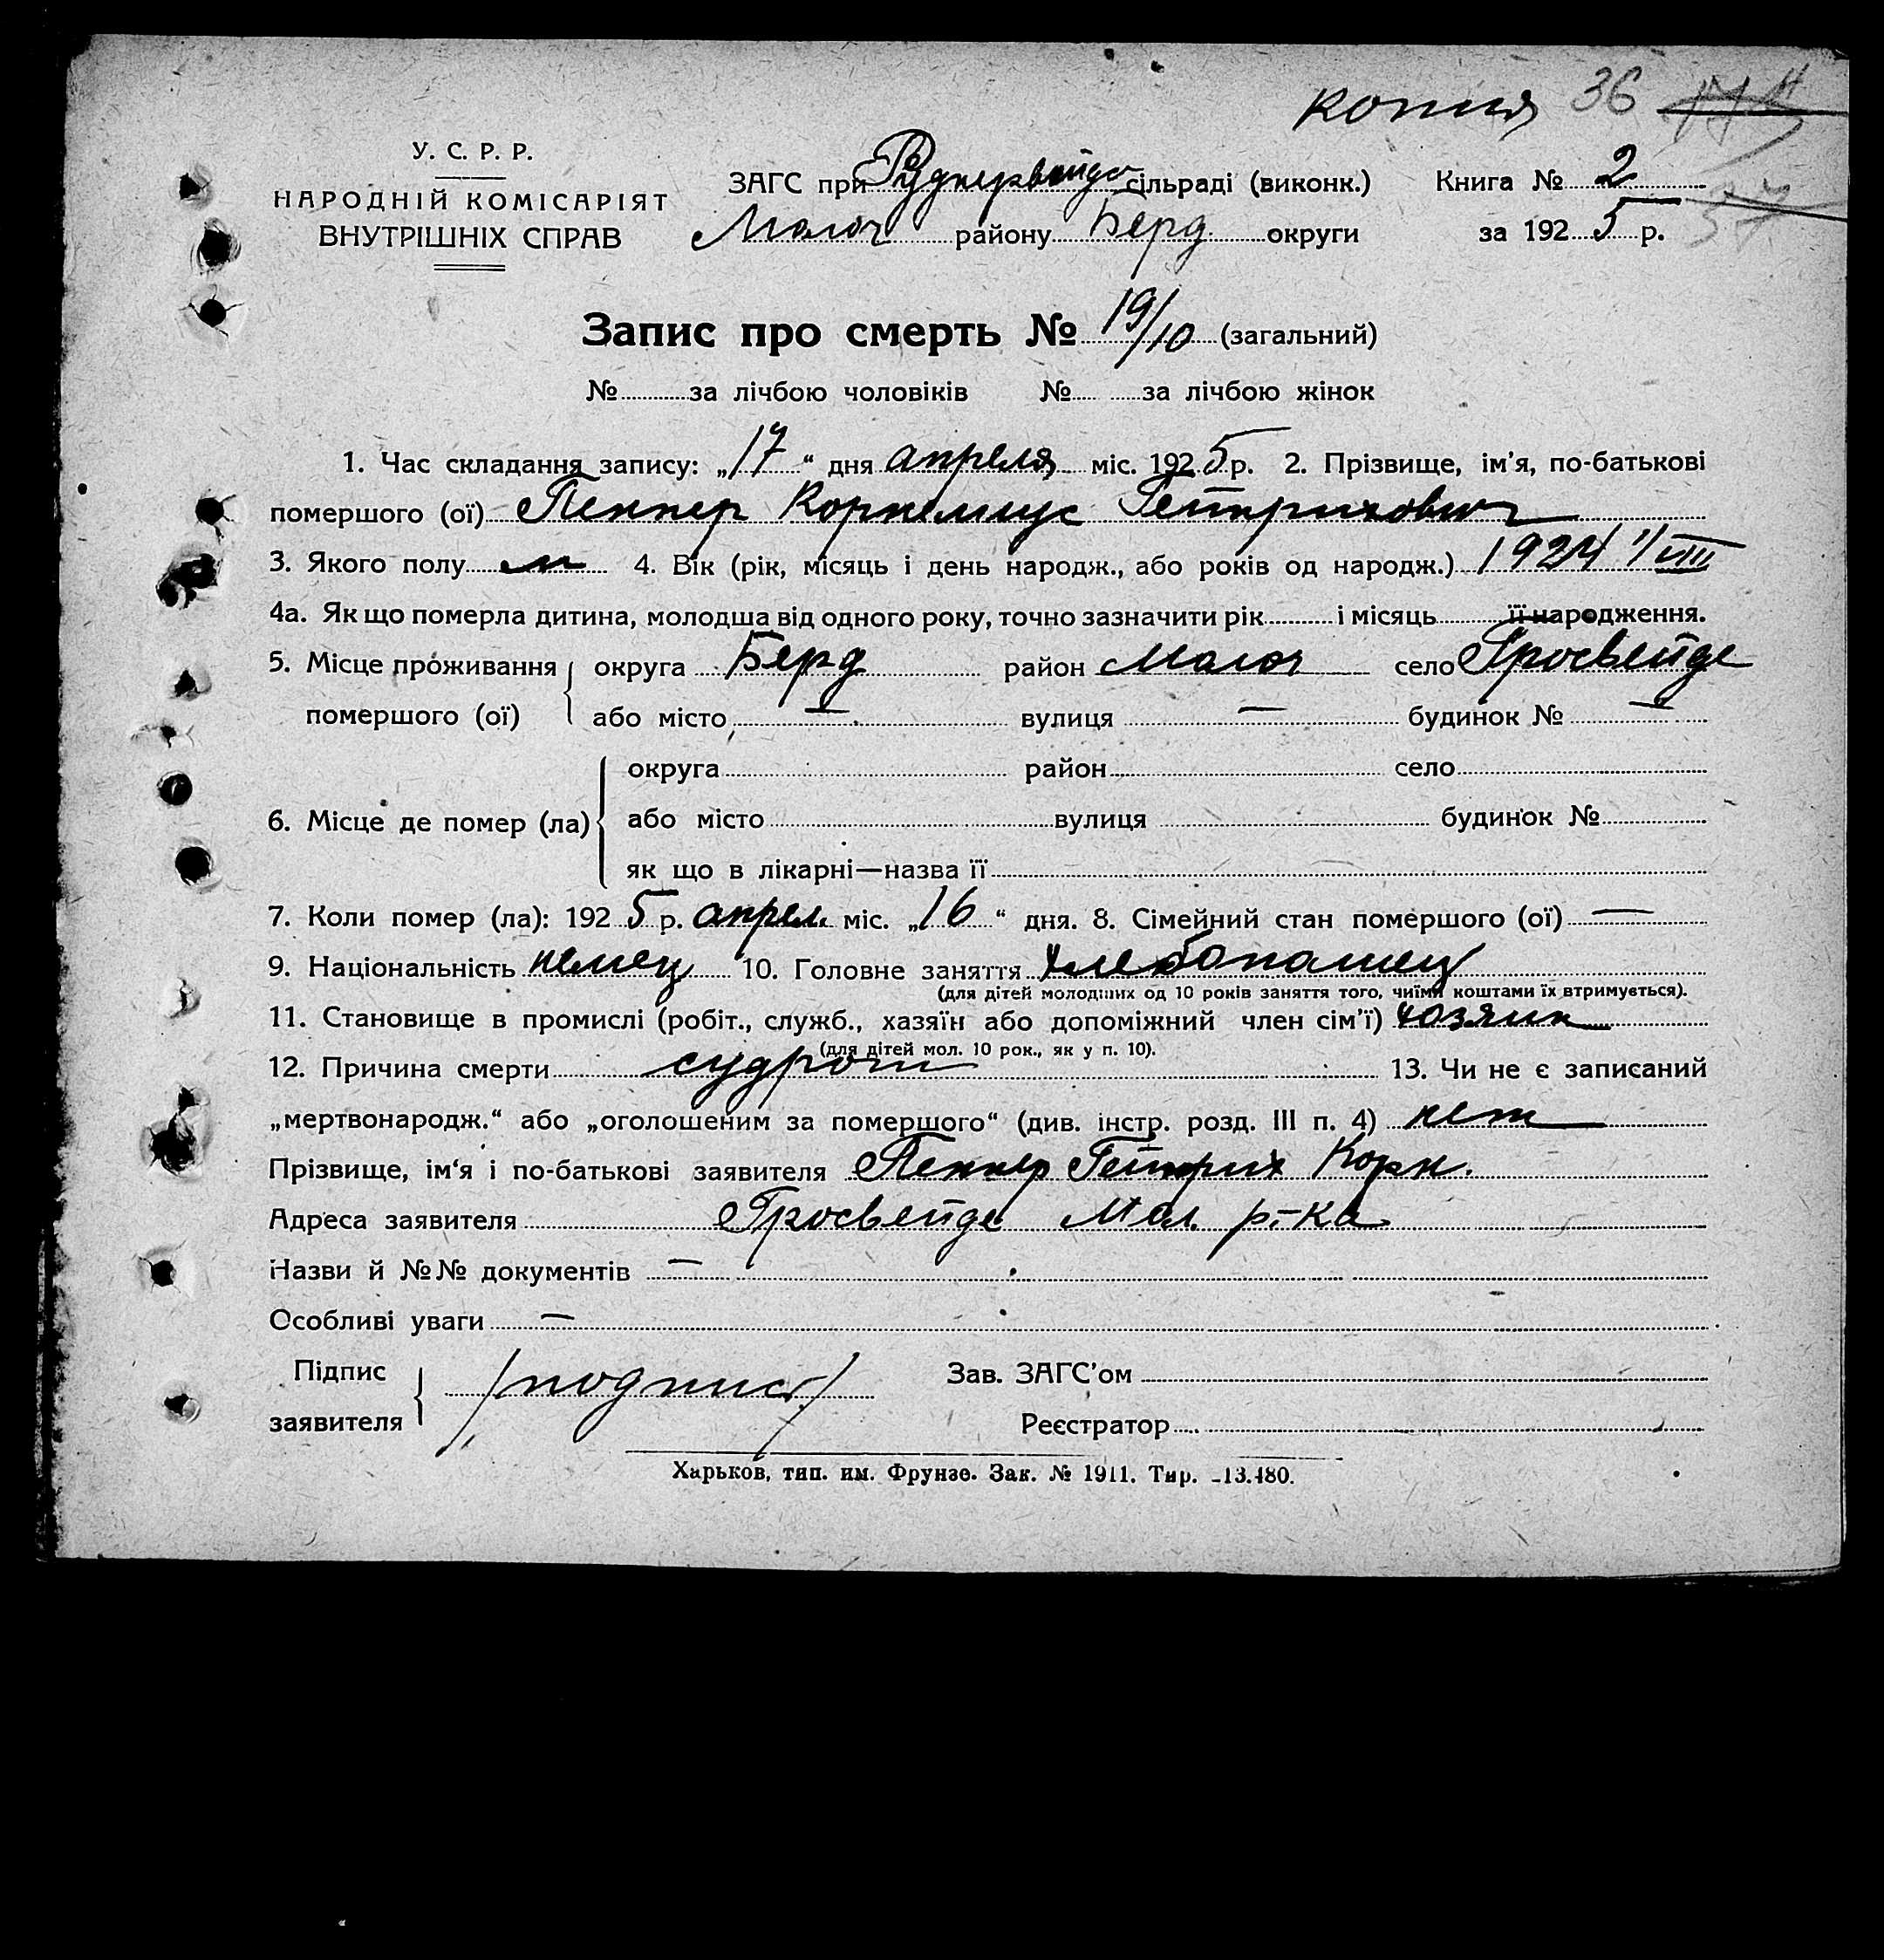 копия 36
У. С. Р. Р.
НАРОДНІЙ КОМІСАРІЯТ
ВНУТРІШНІХ СПРАВ
ЗАГС при Руднервейде сільраді (виконк.) Книга № 2
Молоч району Берд. округи за 1925 р.
Запис про смерть № 19/10 (загальний)
№ за лічбою чоловіків № за лічбою жінок
1. Час складання запису: „17“ дня апреля міс. 1925 р. 2. Прізвище, ім’я, по-батькові
помершого (ої) Пеннер Корнелиус Гейнрихович
3. Якого полу м 4. Вік (рік, місяць і день народж., або років од народж.) 1924 1/VIII
4а. Як що померла дитина, молодша від одного року, точно зазначити рік і місяць її народження.
5. Місце проживання помершого (ої) округа Берд район Молоч село Гросвейде
або місто — вулиця — будинок № —
6. Місце де помер (ла) округа район село
або місто вулиця будинок №
як що в лікарні—назва її
7. Коли помер (ла): 1925 р. апрел. міс. „16“ дня. 8. Сімейний стан помершого (ої) —
9. Національність немец 10. Головне заняття хлебопашец
(для дітей молодших од 10 років заняття того, чиїми коштами їх втримується).
11. Становище в промислі (робіт., служб., хазяїн або допоміжний член сім’ї) хозяин
(для дітей мол. 10 рок., як у п. 10).
12. Причина смерти судрот 13. Чи не є записаний
„мертвонародж.“ або „оголошеним за помершого“ (див. інстр. розд. III п. 4) нет
Прізвище, ім‘я і по-батькові заявителя Пеннер Гейнрих Корн.
Адреса заявителя Гросвейде Мол. р-ка
Назви й №№ документів —
Особливі уваги —
Підпис заявителя /подпись/ Зав. ЗАГС’ом
Реєстратор
Харьков, тип. им. Фрунзе. Зак. № 1911. Тир. -13.480.